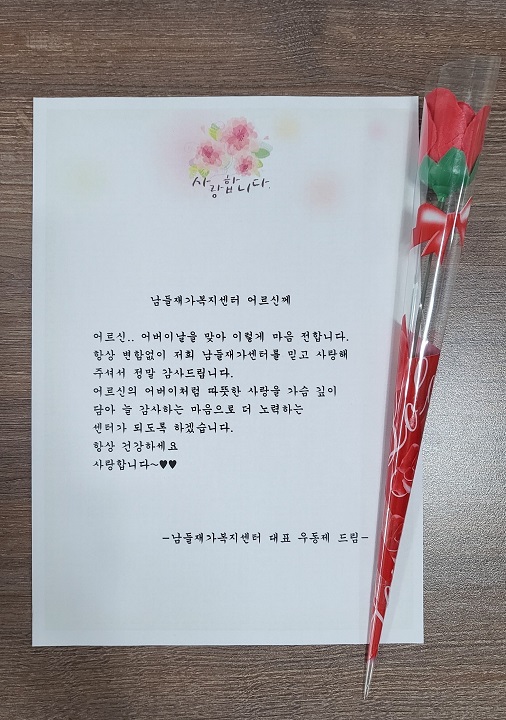 사랑합니다.
남들재가복지센터 어르신께
어르신.. 어버이날을 맞아 이렇게 마음 전합니다.
항상 변함없이 저희 남들재가센터를 믿고 사랑해
주셔서 정말 감사드립니다.
어르신의 어버이처럼 따뜻한 사랑을 가슴 깊이
담아 늘 감사하는 마음으로 더 노력하는
센터가 되도록 하겠습니다.
항상 건강하세요
사랑합니다~♥♥
-남들재가복지센터 대표 우동제 드림-